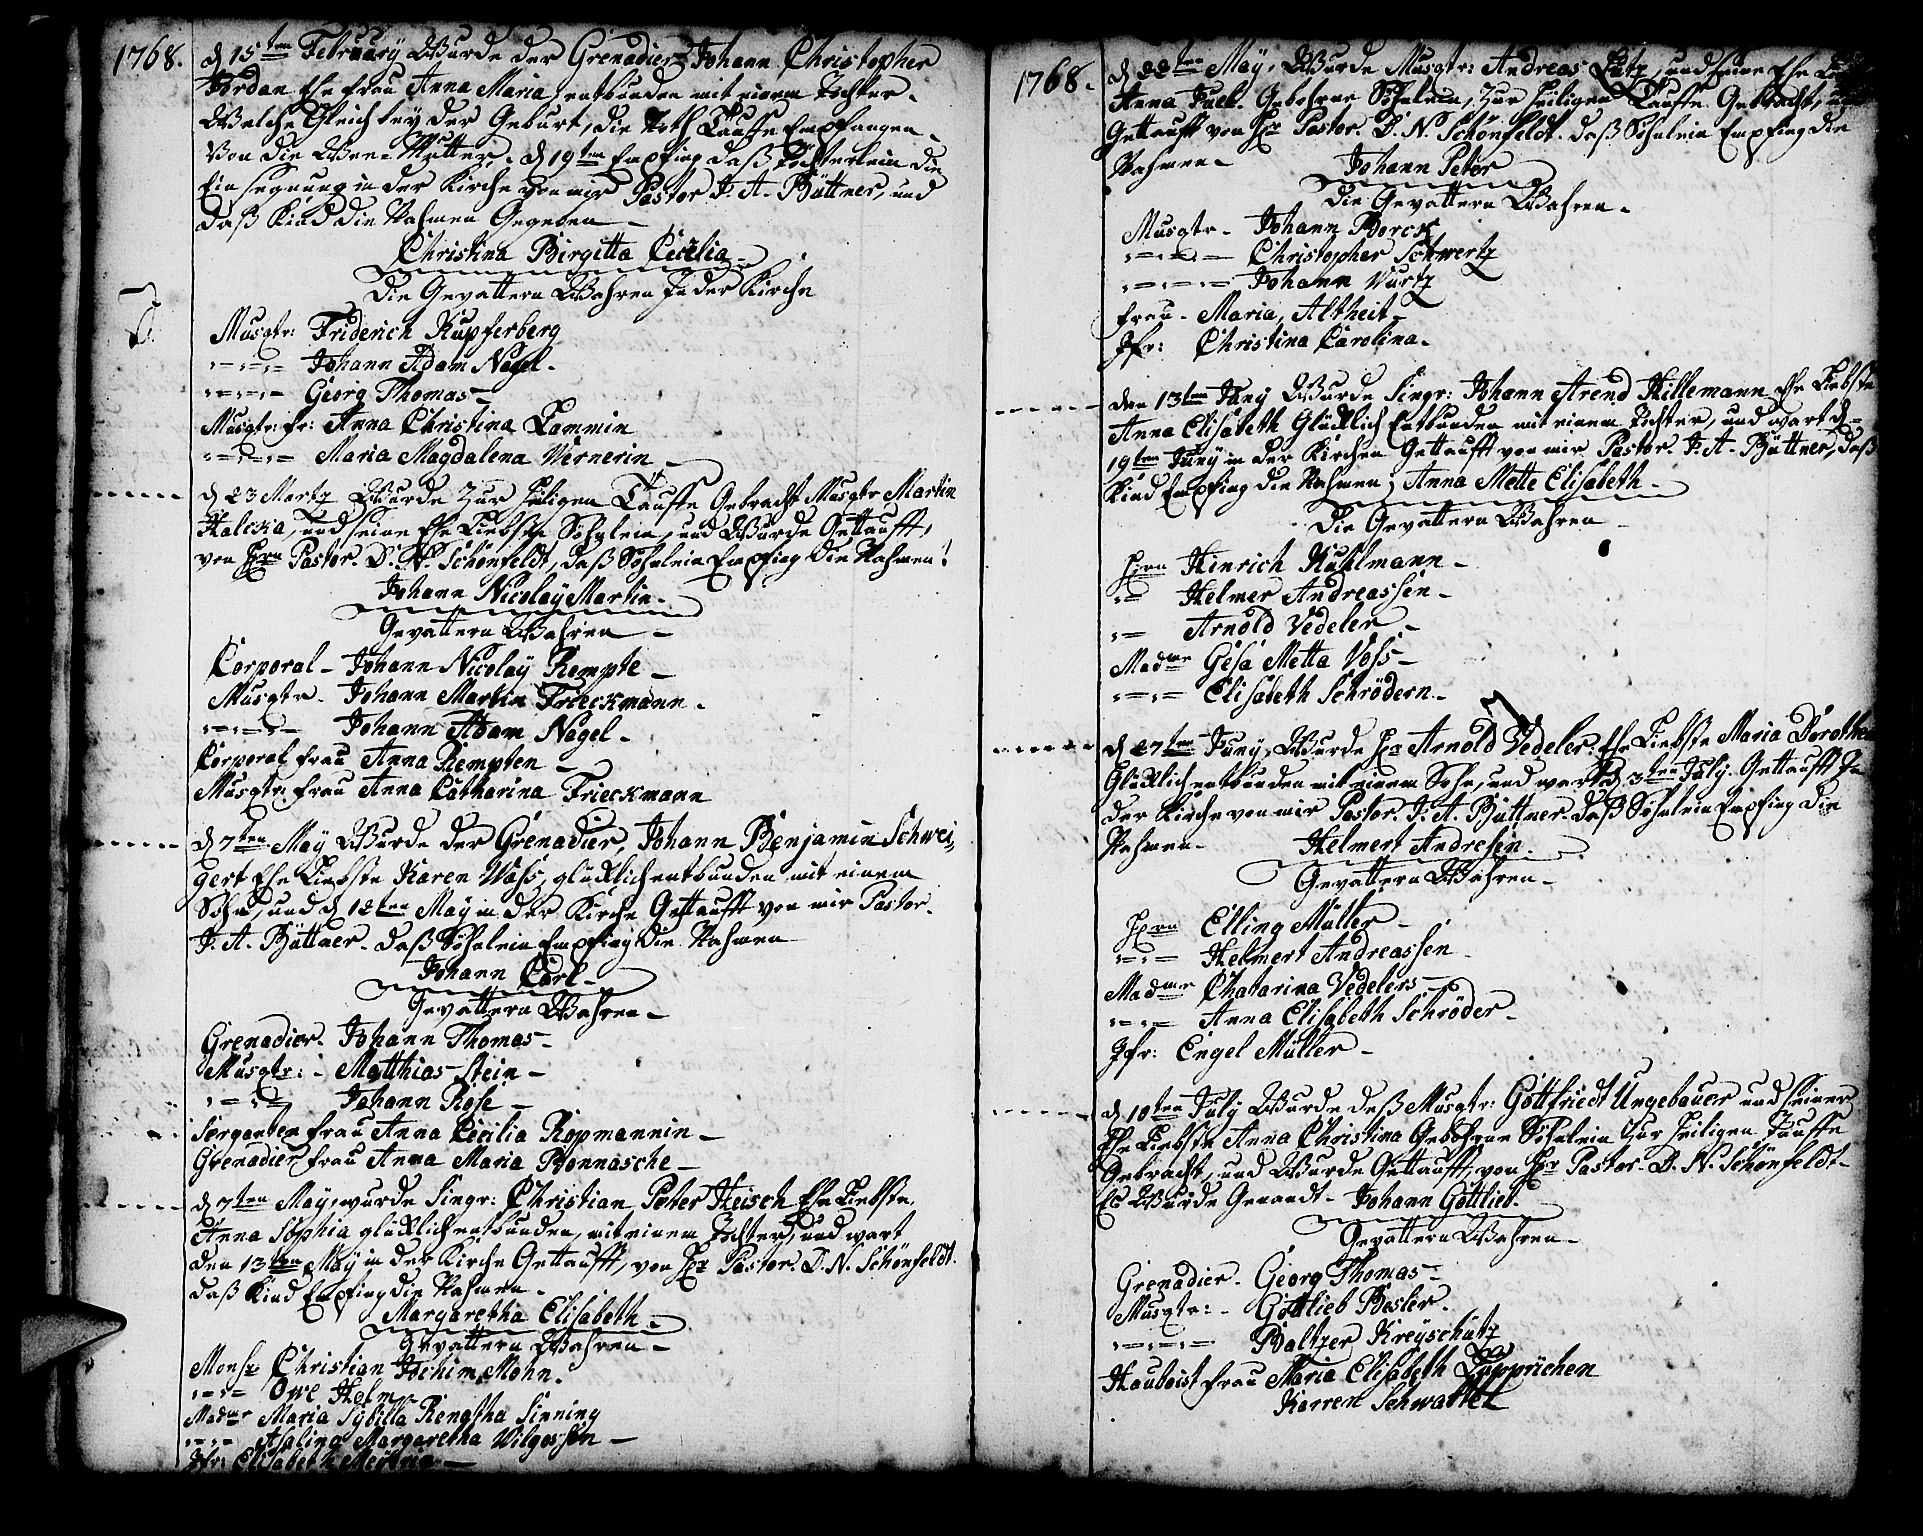 1768. d 15ten February Wurde der Grenadier Johann Christopher
Jordan Ehe frau Anna Maria, entbunden mit einem Tochter.
Welche Gleich bey der Geburt, die Noth Tauffe Empfangen.
Von die Wee-Mutter. d 19ten Empfing daß Töchterlein die
Einsegnung in der Kirche von mir Pastor J. A. Büttner, und
daß Kind die Nahmen Gegeben
Christina Birgitta Cecilia
Die Gevattern Wahren In der Kirche
Musqtr: Friderich Kupferberg
Johann Adam Nagel.
Georg Thomas
Musqtr: fr: Anna Christina Lammin
Maria Magdalena Wernerin
d 23 Martz Wurde zur heiligen Tauffe Gebracht Musqtr Martin
Halcka, und seine Ehe Liebste Söhnlein, und Wurde Gettaufft,
von Hrn Pastor. D. N. Schönfeldt, daß Söhnlein Empfing die Nahmen!
Johann Nicolay Martin.
Gevattern Wahren
Corporal - Johann Nicolaÿ Rempte
Musqtr. Johann Martin Frieckmann.
Johann Adam Nagel.
Corporal frau Anna Rempten
Musqtr. frau Anna Catharina Frieckmann
d 7ten May Wurde der Grenadier, Johann Benjamin Schwei,
gert Ehe Liebste Karen Wass, glücklich entbunden mit einem
Sohn, und d 12ten Maÿ in der Kirche Gettaufft von mir Pastor.
J. A. Büttner. daß Söhnlein Empfing die Nahmen
Johann Carl
Gevattern Wahren
Grenadier. Johann Thomas
Musqtr: - Matthias Stein
Johann Rose
Sergenten frau Anna Cecilia Kopmannin
Grenadier frau Anna Maria Bonnasche
d 7ten Maÿ, wurde Singr: Christian Peter Heisch Ehe Liebste
Anna Sophia glücklich entbunden, mit einem Tochter, und wart
den 13ten Maÿ in der Kirche Gettaufft, von Hr Pastor. D. N. Schönfeldt.
daß Kind Empfing die Nahmen.
Margaretha Elisabeth
Gevattern Wahren
Monsr Christian Jochim Mohn.
Owe Helm
Madme Maria Sybilla Renatha Sinning
Asaling Margaretha Wilgossen
Jfr: Elisabeth
1768. d 22ten Maÿ, Wurde Musqtr: Andreas Lutz, und seine Ehe
Anna Gebohrne Söhnlein, zur heiligen Tauffe Gebracht, und
Gettaufft von Hr Pastor. D. N. Schönfeldt. daß Söhnlein Empfing die
Nahmen Johann Peter
Die Gevattern Wahren.
Musqtr - Johann Borck
Christopher Schwertz
Johann Wurtz
frau - Maria, Altheit
Jfr: Christina Carolina.
den 13ten Juny Wurde Singr: Johann Arend Hillemann Ehe Liebste
Anna Elisabeth Glücklich Entbunden mit einem Tochter, und wart d
19ten Junÿ in der Kirchen Gettaufft von mir Pastor. J. A. Büttner, daß
Kind Empfing die Nahmen; Anna Mette Elisabeth
Die Gevattern Wahren
Hrn Hinrich Kuhlmann
Helmer Andreassen
Arnold Vedeler
Madme Gesa Metta Voss
Elisabeth Schrödern
d 27ten Juny, Wurde Hr Arnold Vedeler. Ehe Liebste Maria Dorothea
Glücklich entbunden mit einem Sohn, und wart d 3ten Julÿ. Gettaufft In
der Kirche von mir Pastor. J. A. Büttner. daß Söhnlein Empfing die
Nahmen. Helmert Andresen.
Gevattern Wahren
Hrn Elling Müller
Helmert Andreassen
Madme Chatarina Vedelers
Anna Elisabeth Schröder
Jfr: Engel Müller
d 10ten Julÿ Wurde deß Musqtr: Gottfriedt Ungebauer und seiner
Ehe Liebste Anna Christina Gebohrne Söhnlein zur heiligen Tauffe
Gebracht, und Wurde Gettaufft, von Hr Pastor. D. N. Schönfeldt
Es Wurde Genandt - Johann Gottlieb.
Gevattern Wahren
Grenadier. Georg Thomas
Musqtr: - Gottlieb Besler.
Baltzer Kreÿschütz
Hauboist frau Maria Elisabeth
Karren